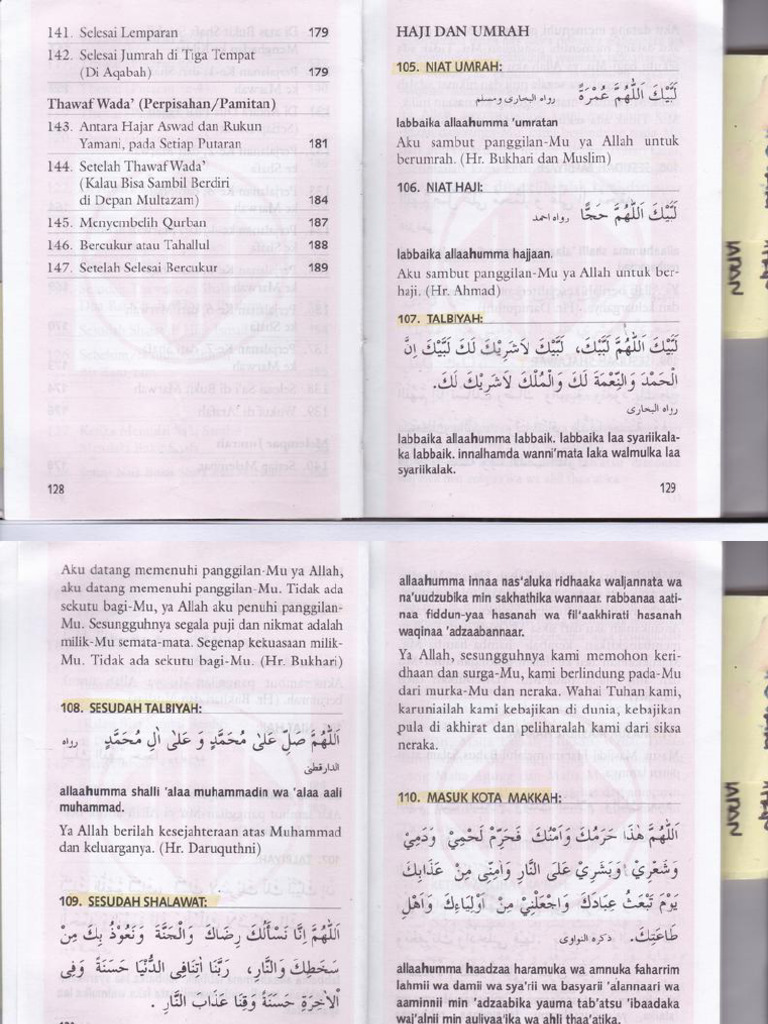 141. Selesai Lemparan 179
142. Selesai Jumrah di Tiga Tempat
(Di Aqabah) 179
Thawaf Wada' (Perpisahan/Pamitan)
143. Antara Hajar Aswad dan Rukun
Yamani, pada Setiap Putaran 181
144. Setelah Thawaf Wada'
(Kalau Bisa Sambil Berdiri
di Depan Multazam) 184
145. Menyembelih Qurban 187
146. Bercukur atau Tahallul 188
147. Setelah Selesai Bercukur 189
128
HAJI DAN UMRAH
105. NIAT UMRAH:
لَبَّيْكَ اَللّٰهُمَّ عُمْرَةً رواه البخارى ومسلم
labbaika allaahumma 'umratan
Aku sambut panggilan-Mu ya Allah untuk
berumrah. (Hr. Bukhari dan Muslim)
106. NIAT HAJI:
لَبَّيْكَ اَللّٰهُمَّ حَجًّا رواه احمد
labbaika allaahumma hajjaan.
Aku sambut panggilan-Mu ya Allah untuk ber-
haji. (Hr. Ahmad)
107. TALBIYAH:
لَبَّيْكَ اَللّٰهُمَّ لَبَّيْكَ، لَبَّيْكَ لَاشَرِيْكَ لَكَ لَبَّيْكَ اِنَّ
الْحَمْدَ وَالنِّعْمَةَ لَكَ وَالْمُلْكَ لَاشَرِيْكَ لَكَ.
رواه البخارى
labbaika allaahumma labbaik. labbaika laa syariikala-
ka labbaik. innalhamda wanni'mata laka walmulka laa
syariikalak.
129
Aku datang memenuhi panggilan-Mu ya Allah,
aku datang memenuhi panggilan-Mu. Tidak ada
sekutu bagi-Mu, ya Allah aku penuhi panggilan-
Mu. Sesungguhnya segala puji dan nikmat adalah
milik-Mu semata-mata. Segenap kekuasaan milik-
Mu. Tidak ada sekutu bagi-Mu. (Hr. Bukhari)
108. SESUDAH TALBIYAH:
اَللّٰهُمَّ صَلِّ عَلٰى مُحَمَّدٍ وَ عَلٰى اٰلِ مُحَمَّدٍ رواه
الدارقطنى
allaahumma shalli 'alaa muhammadin wa 'alaa aali
muhammad.
Ya Allah berilah kesejahteraan atas Muhammad
dan keluarganya. (Hr. Daruquthni)
109. SESUDAH SHALAWAT:
اَللّٰهُمَّ اِنَّا نَسْأَلُكَ رِضَاكَ وَالْجَنَّةَ وَنَعُوْذُ بِكَ مِنْ
سَخَطِكَ وَالنَّارِ، رَبَّنَا اٰتِنَافِى الدُّنْيَا حَسَنَةً وَفِى
اْلاٰخِرَةِ حَسَنَةً وَقِنَا عَذَابَ النَّارِ.
allaahumma innaa nas'aluka ridhaaka waljannata wa
na'uudzubika min sakhathika wannaar. rabbanaa aati-
naa fiddun-yaa hasanah wa fil'aakhirati hasanah
waqinaa 'adzaabannaar.
Ya Allah, sesungguhnya kami memohon keri-
dhaan dan surga-Mu, kami berlindung pada-Mu
dari murka-Mu dan neraka. Wahai Tuhan kami,
karuniailah kami kebajikan di dunia, kebajikan
pula di akhirat dan peliharalah kami dari siksa
neraka.
110. MASUK KOTA MAKKAH:
اَللّٰهُمَّ هٰذَا حَرَمُكَ وَاَمْنُكَ فَحَرِّمْ لَحْمِيْ وَدَمِيْ
وَشَعْرِيْ وَبَشَرِيْ عَلَى النَّارِ وَاٰمِنِّى مِنْ عَذَابِكَ
يَوْمَ تَبْعَثُ عِبَادَكَ وَاجْعَلْنِيْ مِنْ اَوْلِيَاءِكَ وَاَهْلِ
طَاعَتِكَ. ذكره النواوى
allaahumma haadzaa haramuka wa amnuka faharrim
lahmii wa damii wa sya'rii wa basyarii 'alannaari wa
aaminnii min 'adzaabika yauma tab'atsu 'ibaadaka
waj'alnii min auliyaa'ika wa ahli thaa'atika.